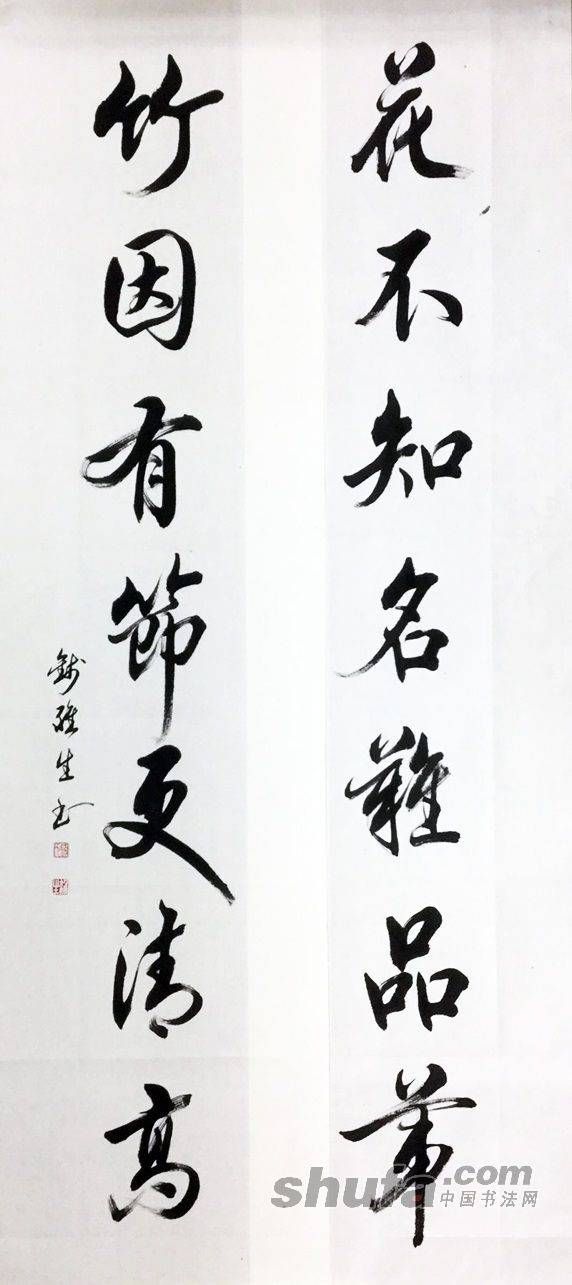 花不知名難品第
竹因有節更清高
錢雄生书
shufa.com
中国书法网